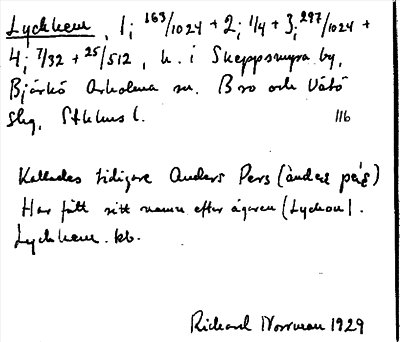 Lyckhem, 1; 163/1024 + 2; 1/4 + 3; 297/1024 +
4; 7/32 + 25/512, h. i Skeppsmyra by,
Björkö Arholma sn. Bro och Vätö
Skg, Sthlms l. 116
Kallades tidigare Anders Pers (àndeʂ pæ´ʂ)
Har fått sitt namn efter ägaren (Lyckou).
Lyckhem. kb.
Richard Norrman 1929